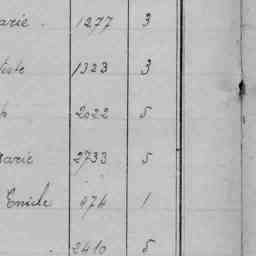 arie . 1277 3
tiste 1323 3
h 2022 5
arie 2733 5
Emile 474 1
. 2410 5